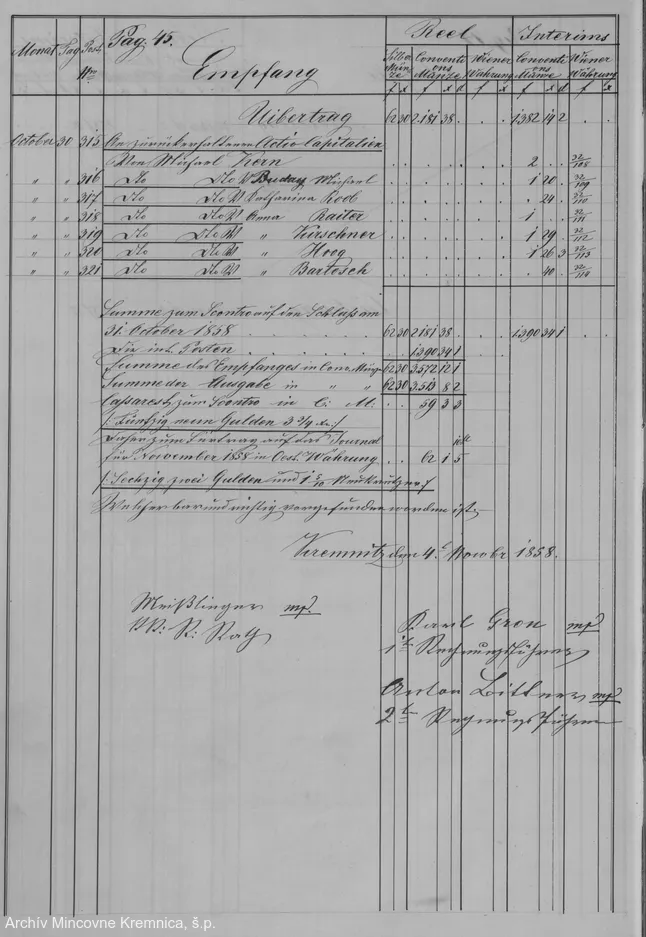 Monat Pag Post Nro Pag. 45. Empfang Reel Interims
Silber Münze Conventions Münze Wiener Währung Conventions Münze Wiener Währung
f x f x d f x f x d f x
Uibertrag 62 30 2.181 38 . . . 1382 14 2 . .
October 30 315 An zurückerhaltenen Activ Capitalien
Von Michael Kern . . . . . . . 2 . . 32/108
" " 316 Dto Dto W Buday Michael . . . . . . . 1 20 . 32/109
" " 317 Dto Dto W Katharina Rod . . . . . . . . 24 . 32/110
" " 318 Dto Dto W Anna Raiter . . . . . . . 1 . . 32/111
" " 319 Dto Dto W " Kürschner . . . . . . . 1 29 . 32/112
" " 320 Dto Dto W " Hoog . . . . . . . 1 26 3 32/113
" " 321 Dto Dto W " Bartosch . . . . . . . . 40 . 32/114
Summe zum Scontro auf den Schluss am
31. October 1858 . . . . 62 30 2181 38 . . . 1390 34 1 . .
Die int. Posten . . . . . . . 1390 34 1
Summe des Empfanges in Conv. Münz. 62 30 3.572 12 1
Summe der Ausgabe in " " 62 30 3.513 8 2
Cassarest zum Scontro in C: M: . . 59 3 3
/: Fünfzig neun Gulden 3 3/4 xr :/
Daher zum Vortrag auf das Journal
für November 1858 in Oest. Währung . . 62 1 5
/: Sechzig zwei Gulden und 1 5/10 Neukreutzer :/
Welcher bar und richtig vorgefunden worden ist.
Kremnitz den 4t Novembr 1858.
Meißlinger mp.
K: Rath
Karl Gron mp
1ter Rechnungsführer
Anton Bittner mp
2ter Rechnungsführer
Archív Mincovne Kremnica, š.p.